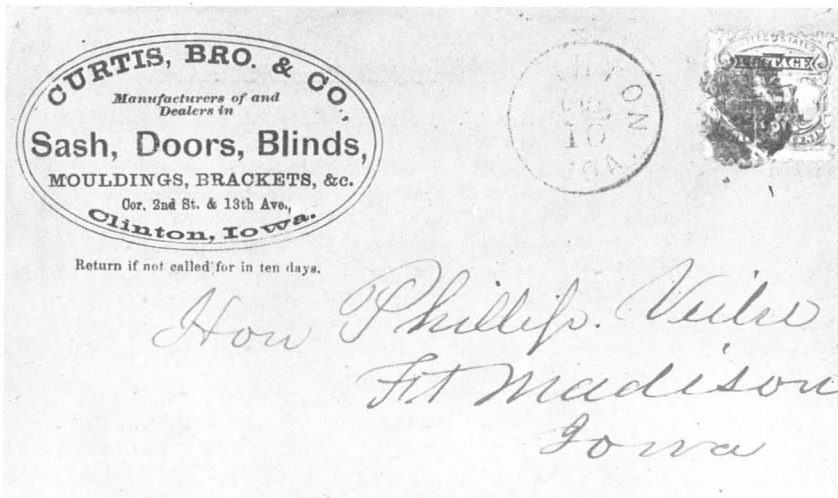 CURTIS, BRO. & CO.,
Manufacturers of and
Dealers in
Sash, Doors, Blinds,
MOULDINGS, BRACKETS, &c.
Cor. 2nd St. & 13th Ave.,
Clinton, Iowa.
Return if not called for in ten days.
FEB
10
POSTAGE
Hon Phillip.
Ft Madison
Iowa